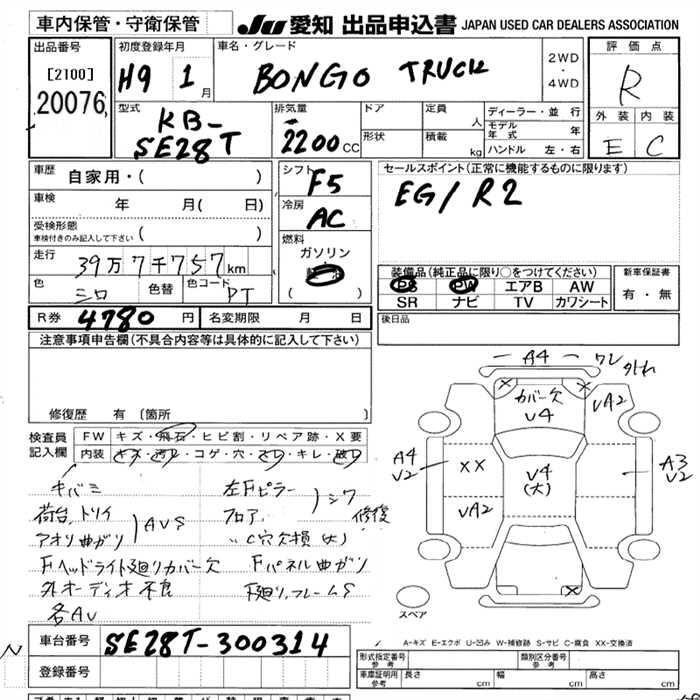 車内保管・守衛保管
JU 愛知 出品申込書 JAPAN USED CAR DEALERS ASSOCIATION
出品番号
[2100]
20076
初度登録年月
H9 1月
車名・グレード
BONGO TRUCK
2WD
・
4WD
評価点
R
外装 内装
E C
型式
KB-
SE28T
排気量
2200CC
ドア
形状
定員
人
積載
kg
ディーラー・並行
モデル年式 年
ハンドル 左・右
車歴 自家用・( )
車検 年 月( 日)
受検形態
車検付きのみ記入して下さい ( )
走行 39万7千757km
色 シロ
色替
色コード PT
シフト
F5
冷房
AC
燃料
ガソリン
軽油
( )
セールスポイント(正常に機能するものに限ります)
EG/R2
装備品(純正品に限り○をつけてください)
PS PW エアB AW
SR ナビ TV カワシート
新車保証書
有・無
R券 4780円
名変期限 月 日
後日品
注意事項申告欄(不具合内容等は具体的に記入して下さい)
修復歴 有 (箇所
検査員
記入欄
FW キズ・飛石・ヒビ割・リペア跡・X要
内装 キズ・汚レ・コゲ・穴・スレ・キレ・破レ
キバミ
荷台、トリイ
アオリ曲ガリ
AVS
Fヘッドライト廻りカバー欠
外オーディオ不良
各AV
左Fピラー
フロア
シワ 修復
(穴欠損 大)
Fパネル曲ガリ
下廻り、フレームS
A4 ワレ
外れ
カバー欠
V4
VA2
A4
V2
XX
VA2
V4
(大)
A3
V2
X
スペア
A-キズ E-エクボ U-凹み W-補修跡 S-サビ C-腐食 XX-交換済
N
車台番号 SE28T-300314
登録番号
形式指定番号
参考
類別区分番号
参考
車庫証明用
参考
長さ cm 幅 cm 高さ cm